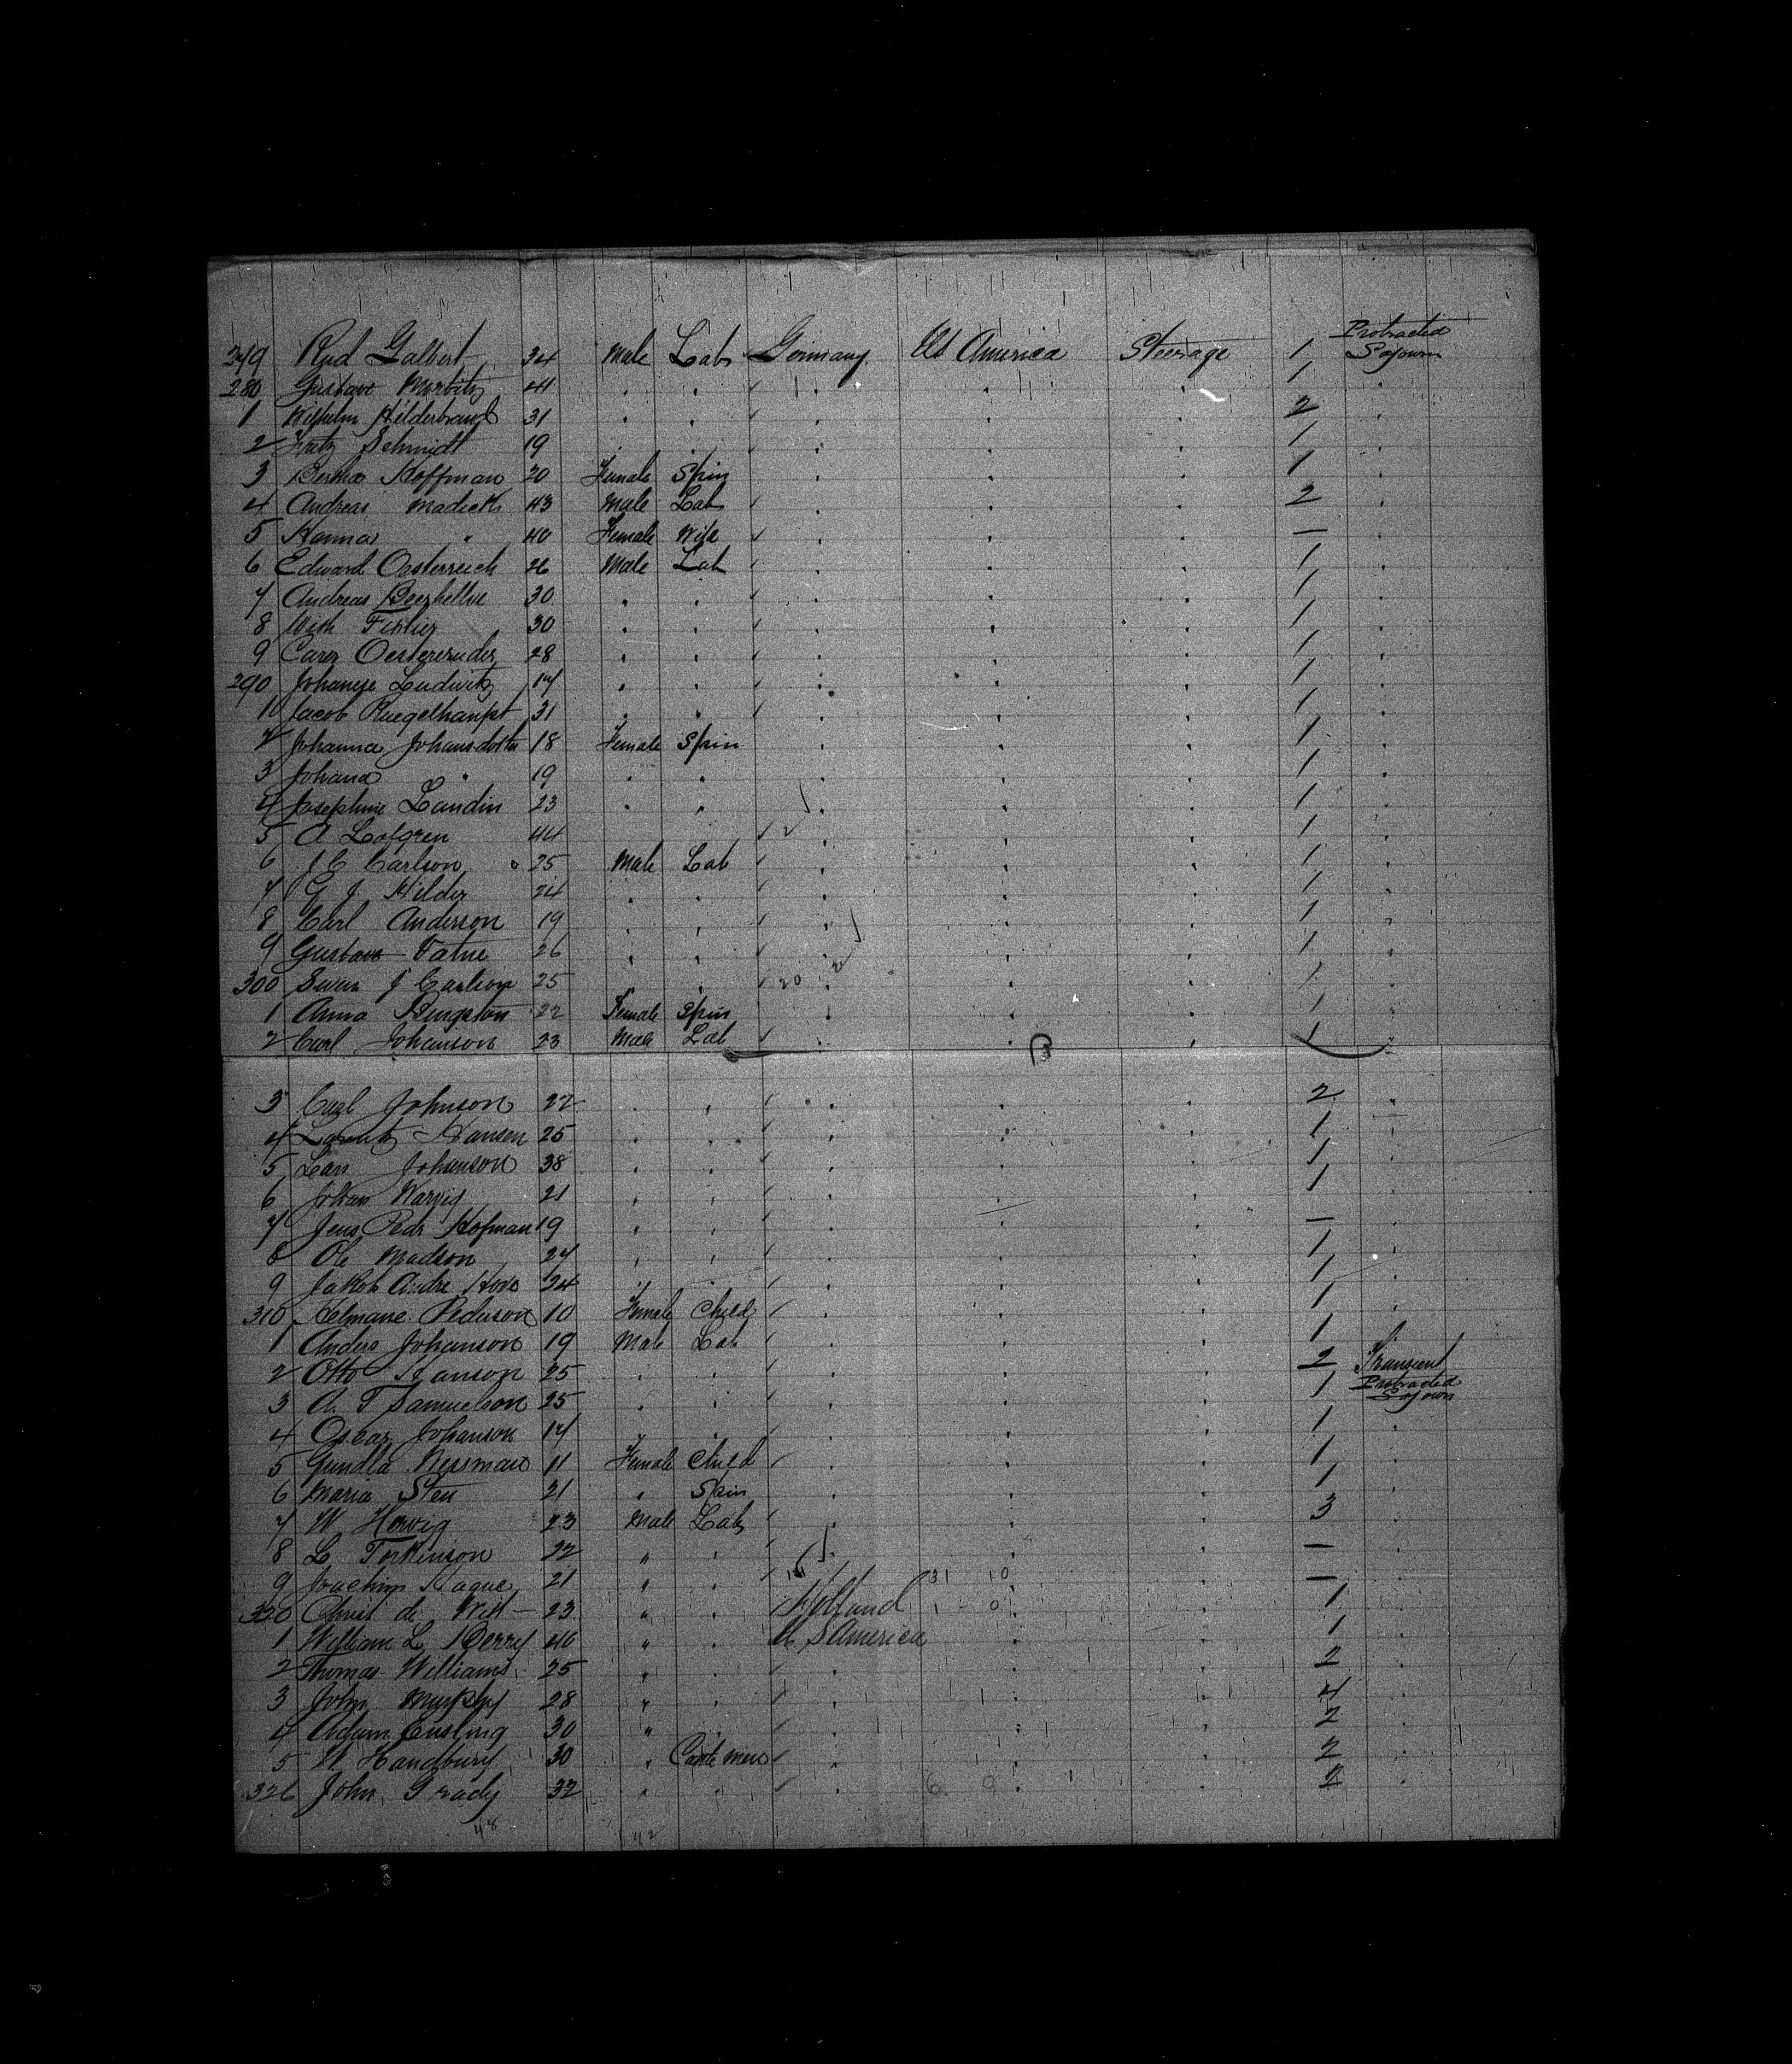 279 Rud Galbert 34 Male Lab Germany US America Steerage 1 Protracted Sojourn
280 Gustave 41 . . . . . 1 .
1 Wilhelm Hilderbrandt 31 . . . . . 2 .
2 Fritz Schmidt 19 . . . . . 1 .
3 Bertha Hoffman 20 Female Spin . . . 1 .
4 Andreas Madick 43 Male Lab . . . 2 .
5 Hanna " 40 Female Wife . . . — .
6 Edward Oesterreich 26 Male Lab . . . 1 .
7 Andreas 30 . . . . . 1 .
8 30 . . . . . 1 .
9 28 . . . . . 1 .
290 Ludwitz 17 . . . . . 1 .
1 Jacob 31 . . . . . 1 .
2 Johanna Johansdotter 18 Female Spin . . . 1 .
3 Johana " 19 . . . . . 1 .
4 Josephine Landin 23 . . . . . 1 .
5 A Lofgren 44 . . . 1 .
6 J C Carlson 25 Male Lab . . . 1 .
7 G J Hilder 24 . . . . . 1 .
8 Carl Anderson 19 . . . . . 1 .
9 Gustave 26 . . . . . 1 .
300 Swen J Carlson 25 . 20 . . . 1 .
1 Anna Bengston 22 Female Spin . . . 1 .
2 Carl Johanson 23 Male Lab . . . 1 .
3 Carl Johnson 22 . . . . . 2 .
4 Lorentz Hansen 25 . . . . . 1 .
5 Lars Johanson 38 . . . . . 1 .
6 Johan 21 . . . . . 1 .
7 Jens Pedr Hofman 19 . . . . . — .
8 Ole Madson 27 . . . . . 1 .
9 Jakob Andre 24 . . . . . 1 .
310 Pederson 10 Female Child . . . 1 .
1 Anders Johanson 19 Male Lab . . . 1
2 Otto Hanson 25 . . . . . 2 Transient
3 A. T Samuelson 25 . . . . . 1 Protracted Sojourn
4 Oscar Johanson 17 . . . . . 1 .
5 Gundla 11 Female Child . . . 1 .
6 Maria Sten 21 . Spin . . . 1 .
7 W Herwig 23 Male Lab . . . 3 .
8 L Torkinson 22 " . . . — .
9 Joachim Hague 21 " . 31 10 . — .
320 Christ de Witt 23 " . Holland 1 - 0 . 1 .
1 William L Berry 40 " . U S America . 1 .
2 Thomas Williams 25 " . . . . 2 .
3 John Murphy 28 " . . . 4 .
4 Adam 30 " . . . . 2 .
5 W. Handbury 30 . Cattle men . . . 2 .
326 John Grady 32 " . . 6 9 . . 2 .
48 42